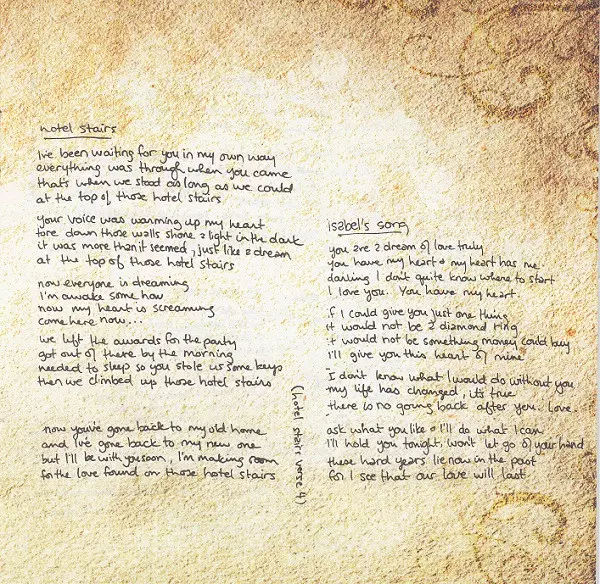 hotel stairs
I've been waiting for you in my own way
everything was through when you came
that's when we stood as long as we could
at the top of those hotel stairs
your voice was warming up my heart
tore down those walls shone a light in the dark
it was more than it seemed, just like a dream
at the top of those hotel stairs
now everyone is dreaming
I'm awake some how
now my heart is screaming
come here now...
we left the awards for the party
got out of there by the morning
needed to sleep so you stole us some keys
then we climbed up those hotel stairs
now you've gone back to my old home
and I've gone back to my new one
but I'll be with you soon, I'm making room
for the love found on those hotel stairs
(hotel stairs verse 4)
isabel's song
you are a dream of love truly
you have my heart & my heart has me
darling I don't quite know where to start
I love you. You have my heart.
if I could give you just one thing
it would not be a diamond ring
it would not be something money could buy
I'll give you this heart of mine
I don't know what I would do without you
my life has changed, it's true
there is no going back after you. Love.
ask what you like & I'll do what I can
I'll hold you tonight, won't let go of your hand
these hard years lie now in the past
for I see that our love will last